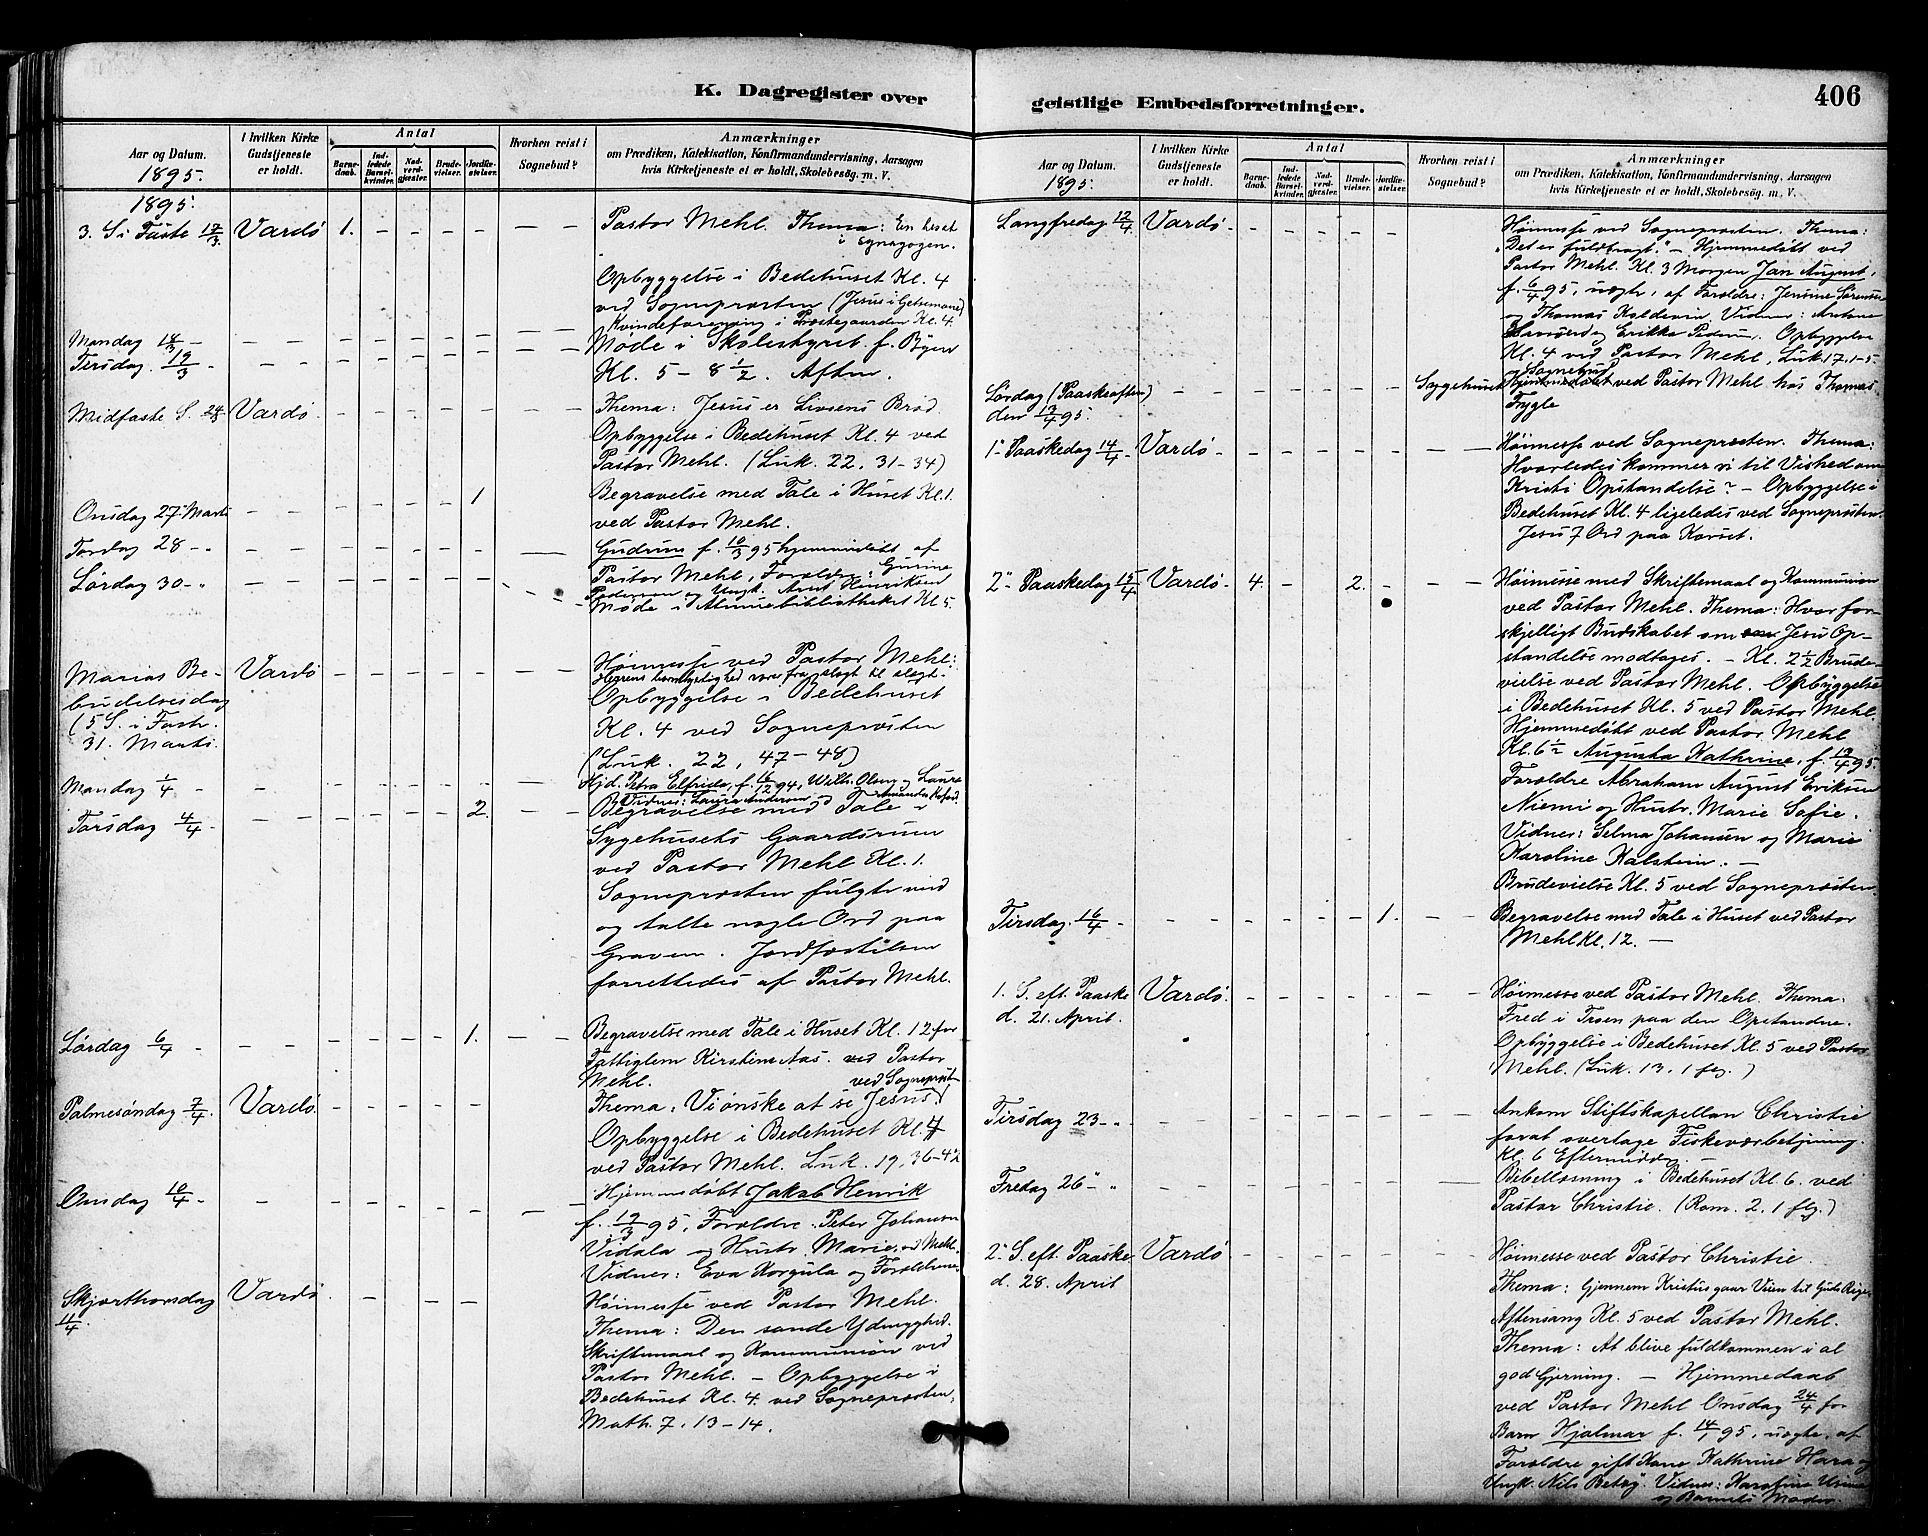 K. Dagregister over
geistlige Embedsforretninger.
406
Aar og Datum.
1895.
I hvilken Kirke
Gudstjeneste
er holdt.
Antal
Barne-
daab.
Ind-
ledede
Barsel-
kvinder.
Nad-
verd-
gjester.
Brude-
vielser.
Jordfæ-
stelser.
Hvorhen reist i
Sognebud?
Anmærkninger
om Prædiken, Katekisation, Konfirmandundervisning, Aarsagen
hvis Kirketjeneste ei er holdt, Skolebesøg. m. V.
1895.
3. S. i Faste 17/3 Vardø 1. Pastor Mehl. Thema: En besat
i Synagogen.
Opbyggelse i Bedehuset Kl. 4
ved Sognepræsten (Jesus i Getsemane)
Mandag 18/3 - Kvindeforening i Præstegaarden Kl. 4.
Tirsdag 19/3 - Møde i Skolestyret f. Byen
Kl. 5 - 8 1/2. Aften.
Midfaste S. 24/3 Vardø Thema: Jesus er Livsens Brød.
Opbyggelse i Bedehuset Kl. 4 ved
Pastor Mehl. (Luk. 22, 31-34)
Onsdag 27 Marts 1 Begravelse med Tale i Huset Kl. 1.
ved Pastor Mehl.
Torsdag 28 - " Gudrun f. 10/3 95 hjemmedøbt af
Pastor Mehl, Forældre: Gurine
Pedersen og Ungk. Henriksen
Lørdag 30 - " Møde i Almuebibliotheket Kl 5.
Marias Be-
budelsesdag
(5 S. i Faste.
31. Marts.
Vardø Høimesse ved Pastor Mehl:
Herrens barmhjertighed varer fra slægt til slægt.
Opbyggelse i Bedehuset
Kl. 4 ved Sognepræsten
(Luk. 22, 47-48)
Mandag 1/4 - Hjd. Petra Elfrida, f. 16/12 94, Wilh. Olsen og Laura
Vidner: Laura Andersen Amanda
Torsdag 4/4 - 2. Begravelse med Tale i
Sygehusets Gaardsrum
ved Pastor Mehl Kl. 1.
Sognepræsten fulgte med
og talte nogle Ord paa
Graven. Jordfæstelsen
forrettedes af Pastor Mehl.
Lørdag 6/4 - 1. Begravelse med Tale i Huset Kl. 12 for
Fattiglem Kirstine Aas. ved Pastor
Mehl. ved Sognepræst
Palmesøndag 7/4. Vardø Thema: Vi ønske at se Jesus
Opbyggelse i Bedehuset Kl. 4
ved Pastor Mehl. Luk. 19, 36-42
Onsdag 10/4 - Hjemmedøbt Jakob Henrik
f. 19/3 95, Forældre: Peter Johansen
Vidala og Hustr. Marie, ved Mehl.
Vidner: Eva Korgula og Forældrene
Skjærthorsdag
11/4.
Vardø Høimesse ved Pastor Mehl.
Thema: Den sande Ydmyghed.
Skriftemaal og Kommunion ved
Pastor Mehl. - Opbyggelse i
Bedehuset Kl. 4. ved Sognepræsten,
Math. 7, 13-14.
Aar og Datum.
1895.
I hvilken Kirke
Gudstjeneste
er holdt.
Antal
Barne-
daab.
Ind-
ledede
Barsel-
kvinder.
Nad-
verd-
gjester.
Brude-
vielser.
Jordfæ-
stelser.
Hvorhen reist i
Sognebud?
Anmærkninger
om Prædiken, Katekisation, Konfirmandundervisning, Aarsagen
hvis Kirketjeneste ei er holdt, Skolebesøg. m. V.
Langfredag 12/4 Vardø Høimesse ved Sognepræsten. Thema:
"Det er fuldbragt." - Hjemmedøbt ved
Pastor Mehl. Kl. 3 Morgen Jan August,
f. 6/4 95, uægte, af Forældre: Jensine Sørensen
og Thomas Koldevin. Vidner: Antone
og Erikka Pedersen. Opbyggelse
Kl. 4 ved Pastor Mehl, Luk. 17. 1-5.
Lørdag (Paaskeaften)
den 13/4 95.
Sygehuset Sognebud ved Pastor Mehl hos Thomas
Trygle
1ste Paaskedag 14/4 - Vardø Høimesse ved Sognepræsten. Thema:
Hvorledes kommer vi til Vished om
Kristi Opstandelse? - Opbyggelse i
Bedehuset Kl. 4 ligeledes ved Sognepræsten.
Jesu 7 Ord paa Korset.
2den Paaskedag 15/4 Vardø 4. 2. Høimesse med Skriftemaal og Kommunion
ved Pastor Mehl. Thema: Hvor for-
skjelligt Budskabet om Jesu Op-
standelse modtages. - Kl. 2 1/2 Brude-
vielse ved Pastor Mehl. Opbyggelse
i Bedehuset Kl. 5 ved Pastor Mehl.
Hjemmedøbt ved Pastor Mehl
Kl. 6 1/2 Augusta Kathrine, f. 13/4 95.
Forældre Abraham August Eriksen
Niemi og Hustr. Marie Sofie.
Vidner: Selma Johansen og Marie
Karoline Kalstein. -
Brudevielse Kl. 5 ved Sognepræsten.
Tirsdag 16/4 - 1. Begravelse med Tale i Huset ved Pastor
Mehl Kl. 12. -
1. S. eft. Paaske
d. 21. April.
Vardø. Høimesse ved Pastor Mehl. Thema:
Fred i Troen paa den Opstandne.
Opbyggelse i Bedehuset Kl. 5 ved Pastor
Mehl. (Luk. 13, 1 flg.)
Tirsdag 23 - " Ankom Stiftskapellan Christie
forat overtage Fiskeværbetjening.
Kl. 6 Eftermiddag. -
Fredag 26 - " Bibellæsning i Bedehuset Kl 6. ved
Pastor Christie. (Rom. 2. 1 flg.)
2. S. eft. Paaske
d. 28. April
Vardø Høimesse ved Pastor Christie.
Thema: Gjennem Kristus gaar Veien til Guds Rige.
Aftensang Kl. 5 ved Pastor Mehl.
Thema: At blive fuldkommen i al
god Gjerning. - Hjemmedaab
ved Pastor Mehl Onsdag 24/4 for
Barn Hjalmar f. 14/1 95, uægte, af
Forældre gift Kone Kathrine Hara og
Ungk. Nils Betsy. Vidner: Karoline
og Barnets Moder.